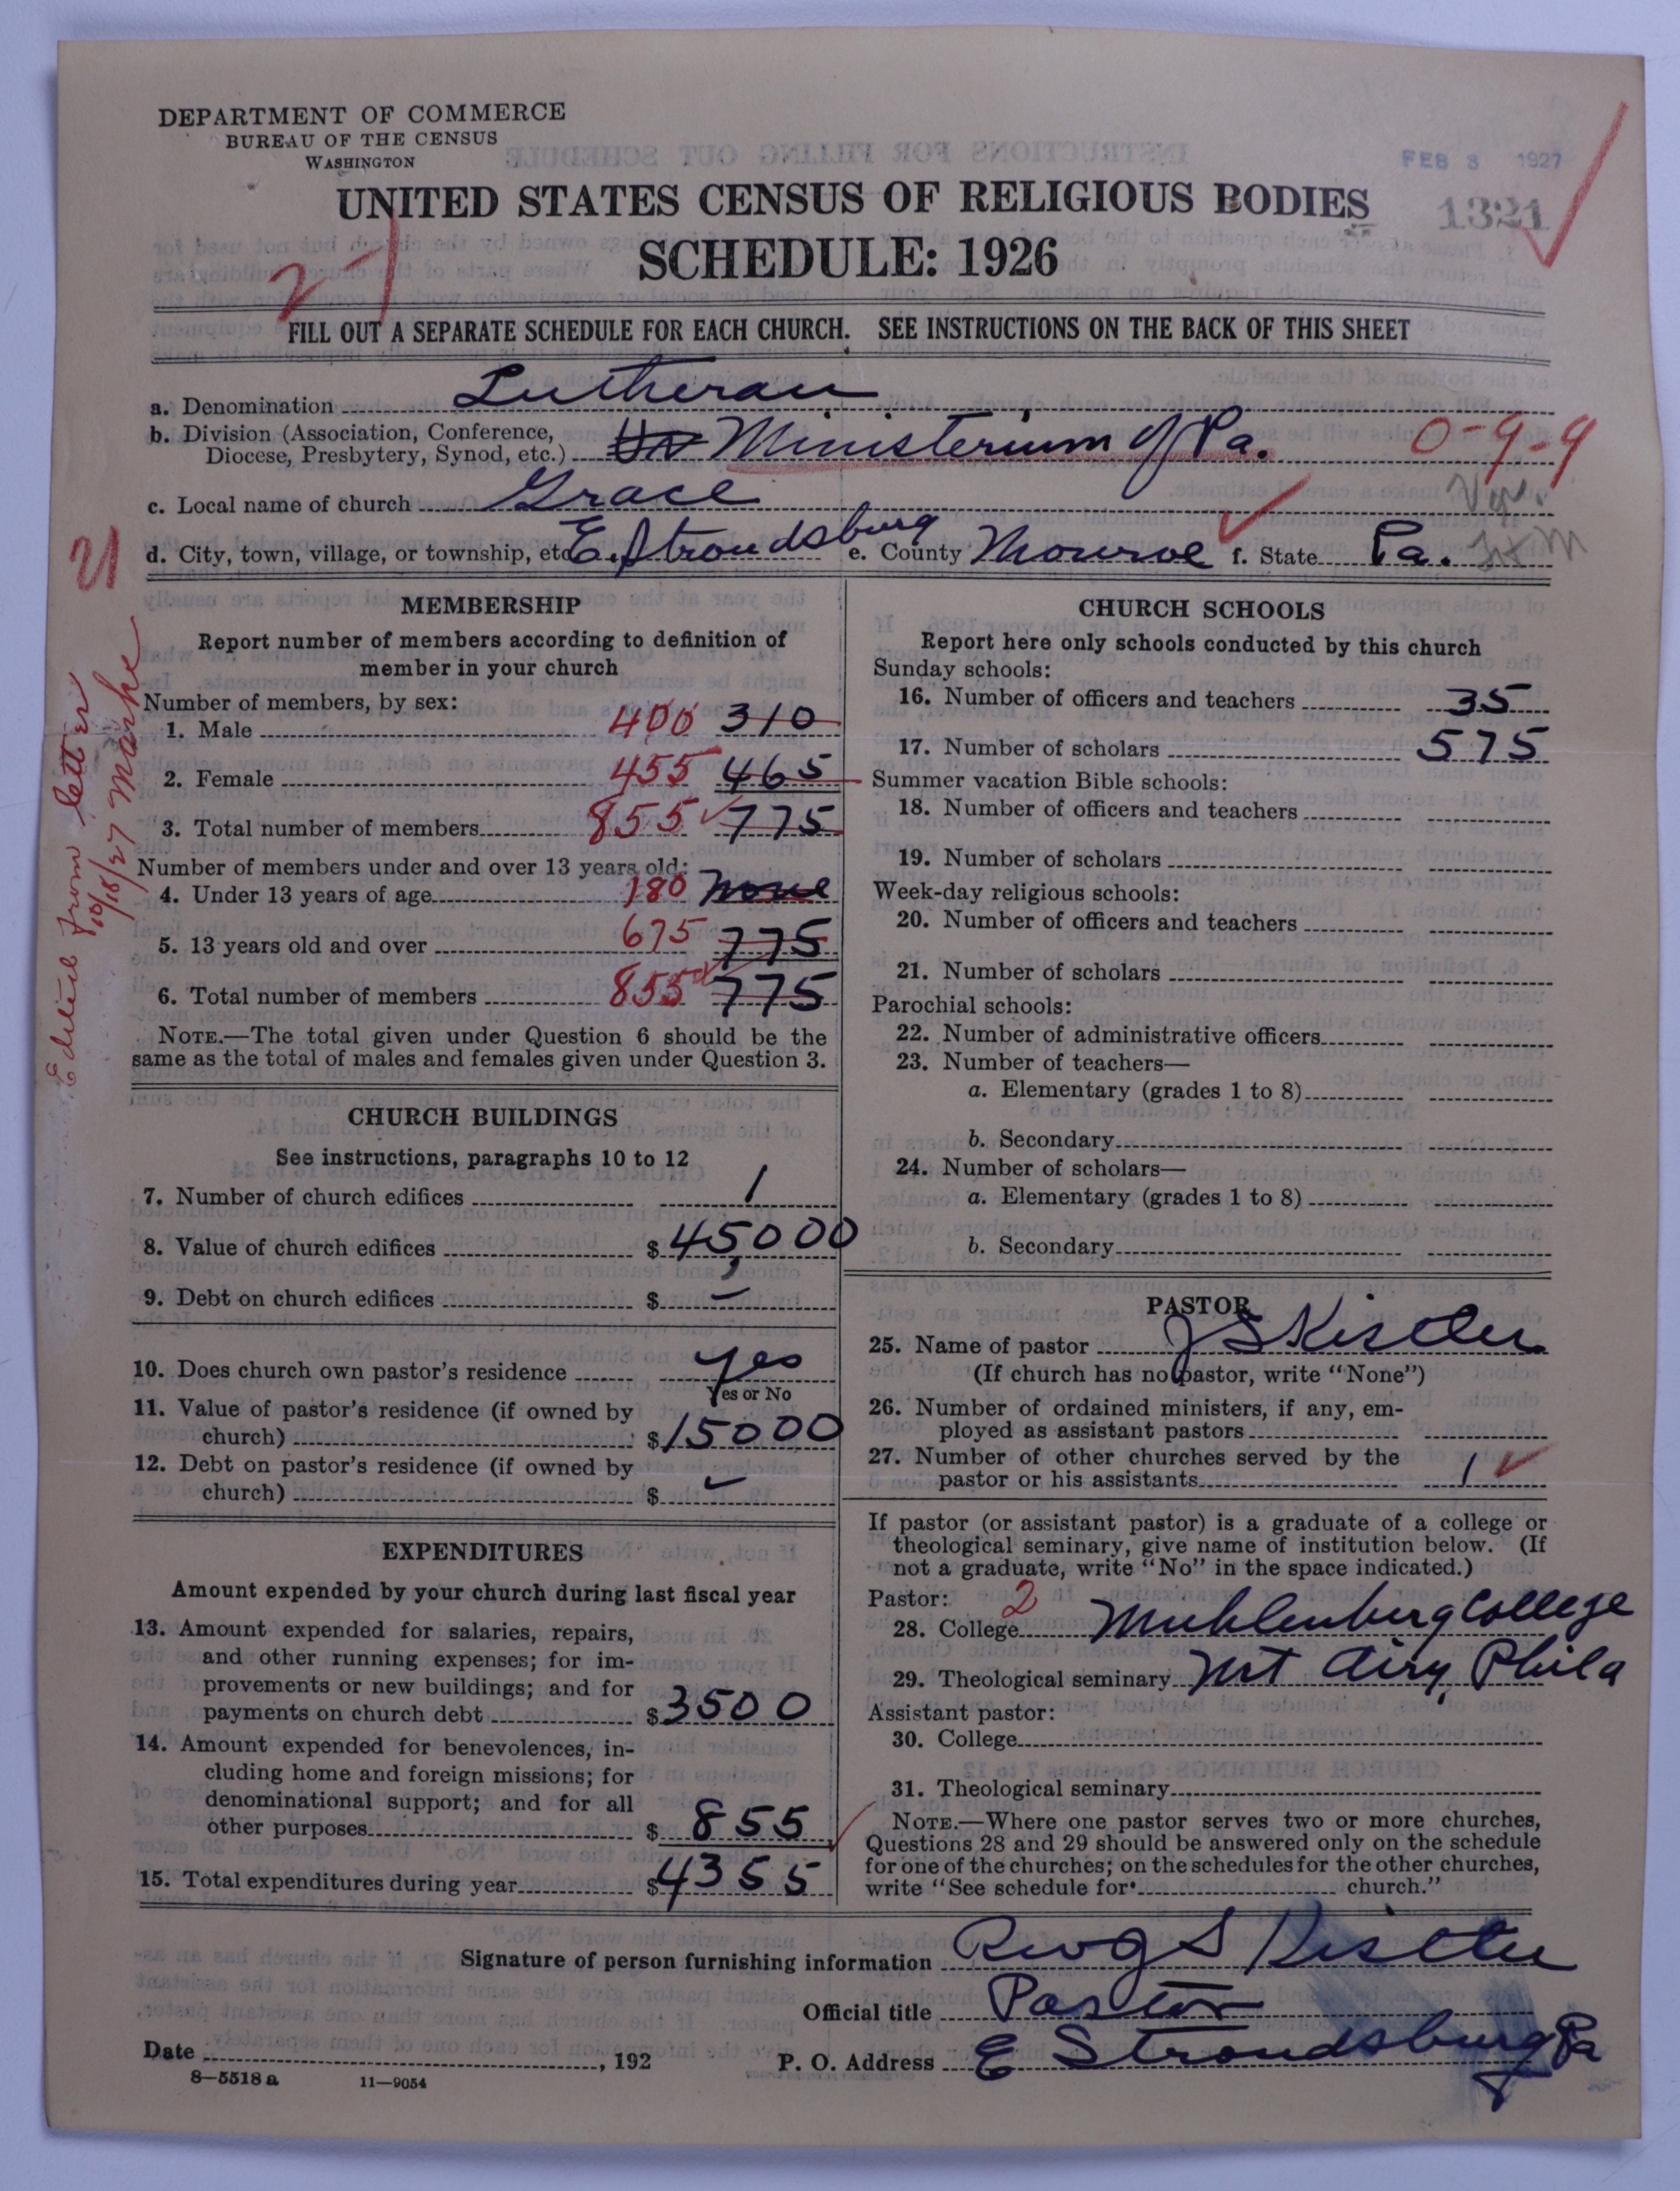 DEPARTMENT OF COMMERCE
BUREAU OF THE CENSUS
WASHINGTON
FEB 8 1927
UNITED STATES CENSUS OF RELIGIOUS BODIES
1321
SCHEDULE: 1926
FILL OUT A SEPARATE SCHEDULE FOR EACH CHURCH. SEE INSTRUCTIONS ON THE BACK OF THIS SHEET
a. Denomination Lutheran
b. Division (Association, Conference,
Diocese, Presbytery, Synod, etc.) Ministerium of Pa. 0-9-9
c. Local name of church Grace
d. City, town, village, or township, etc. E. Stroudsburg e. County Monroe f. State Pa.
Edited from letter
10/18/27 Marke
MEMBERSHIP
Report number of members according to definition of
member in your church
Number of members, by sex:
1. Male 400 310
2. Female 455 465
3. Total number of members 855 775
Number of members under and over 13 years old:
4. Under 13 years of age 180 none
5. 13 years old and over 675 775
6. Total number of members 855 775
NOTE.—The total given under Question 6 should be the
same as the total of males and females given under Question 3.
CHURCH BUILDINGS
See instructions, paragraphs 10 to 12
7. Number of church edifices 1
8. Value of church edifices $ 45,000
9. Debt on church edifices $ –
10. Does church own pastor's residence yes
Yes or No
11. Value of pastor's residence (if owned by
church) $ 15000
12. Debt on pastor's residence (if owned by
church) $ –
EXPENDITURES
Amount expended by your church during last fiscal year
13. Amount expended for salaries, repairs,
and other running expenses; for im-
provements or new buildings; and for
payments on church debt $ 3500
14. Amount expended for benevolences, in-
cluding home and foreign missions; for
denominational support; and for all
other purposes $ 855
15. Total expenditures during year $ 4355
CHURCH SCHOOLS
Report here only schools conducted by this church
Sunday schools:
16. Number of officers and teachers 35
17. Number of scholars 575
Summer vacation Bible schools:
18. Number of officers and teachers
19. Number of scholars
Week-day religious schools:
20. Number of officers and teachers
21. Number of scholars
Parochial schools:
22. Number of administrative officers
23. Number of teachers—
a. Elementary (grades 1 to 8)
b. Secondary
24. Number of scholars—
a. Elementary (grades 1 to 8)
b. Secondary
PASTOR
25. Name of pastor J S Kistler
(If church has no pastor, write "None")
26. Number of ordained ministers, if any, em-
ployed as assistant pastors
27. Number of other churches served by the
pastor or his assistants 1
If pastor (or assistant pastor) is a graduate of a college or
theological seminary, give name of institution below. (If
not a graduate, write "No" in the space indicated.)
Pastor: 2
28. College Muhlenburg College
29. Theological seminary Mt Airy, Phila
Assistant pastor:
30. College
31. Theological seminary
NOTE.—Where one pastor serves two or more churches,
Questions 28 and 29 should be answered only on the schedule
for one of the churches; on the schedules for the other churches,
write "See schedule for church."
Signature of person furnishing information Rev J S Kistler
Official title Pastor
Date , 192
P. O. Address E Stroudsburg Pa
8—5518 a 11—9054